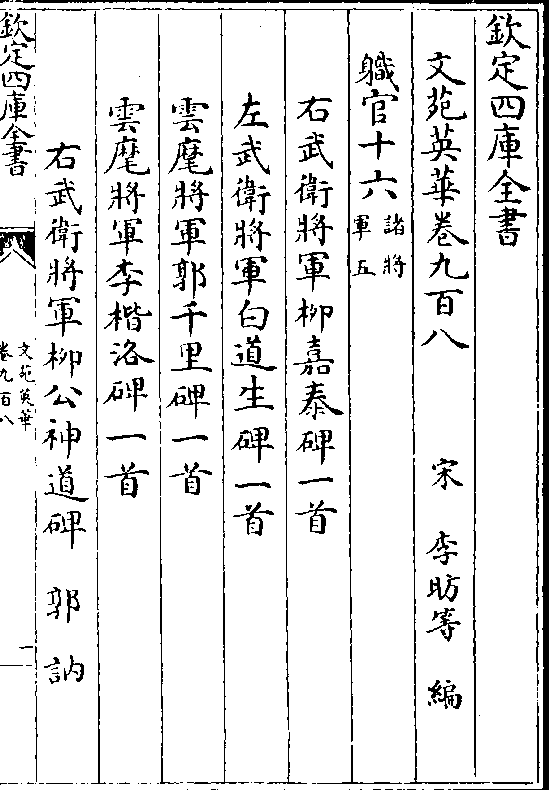 欽定四庫全書
文苑英華卷九百八 宋 李昉等 編
職官十六 諸將軍五
右武衛將軍柳嘉泰碑一首
左武衛將軍白道生碑一首
雲麾將軍郭千里碑一首
雲麾將軍李楷洛碑一首
右武衛將軍柳公神道碑 郭訥
欽定四庫全書
文苑英華
卷九百八
一